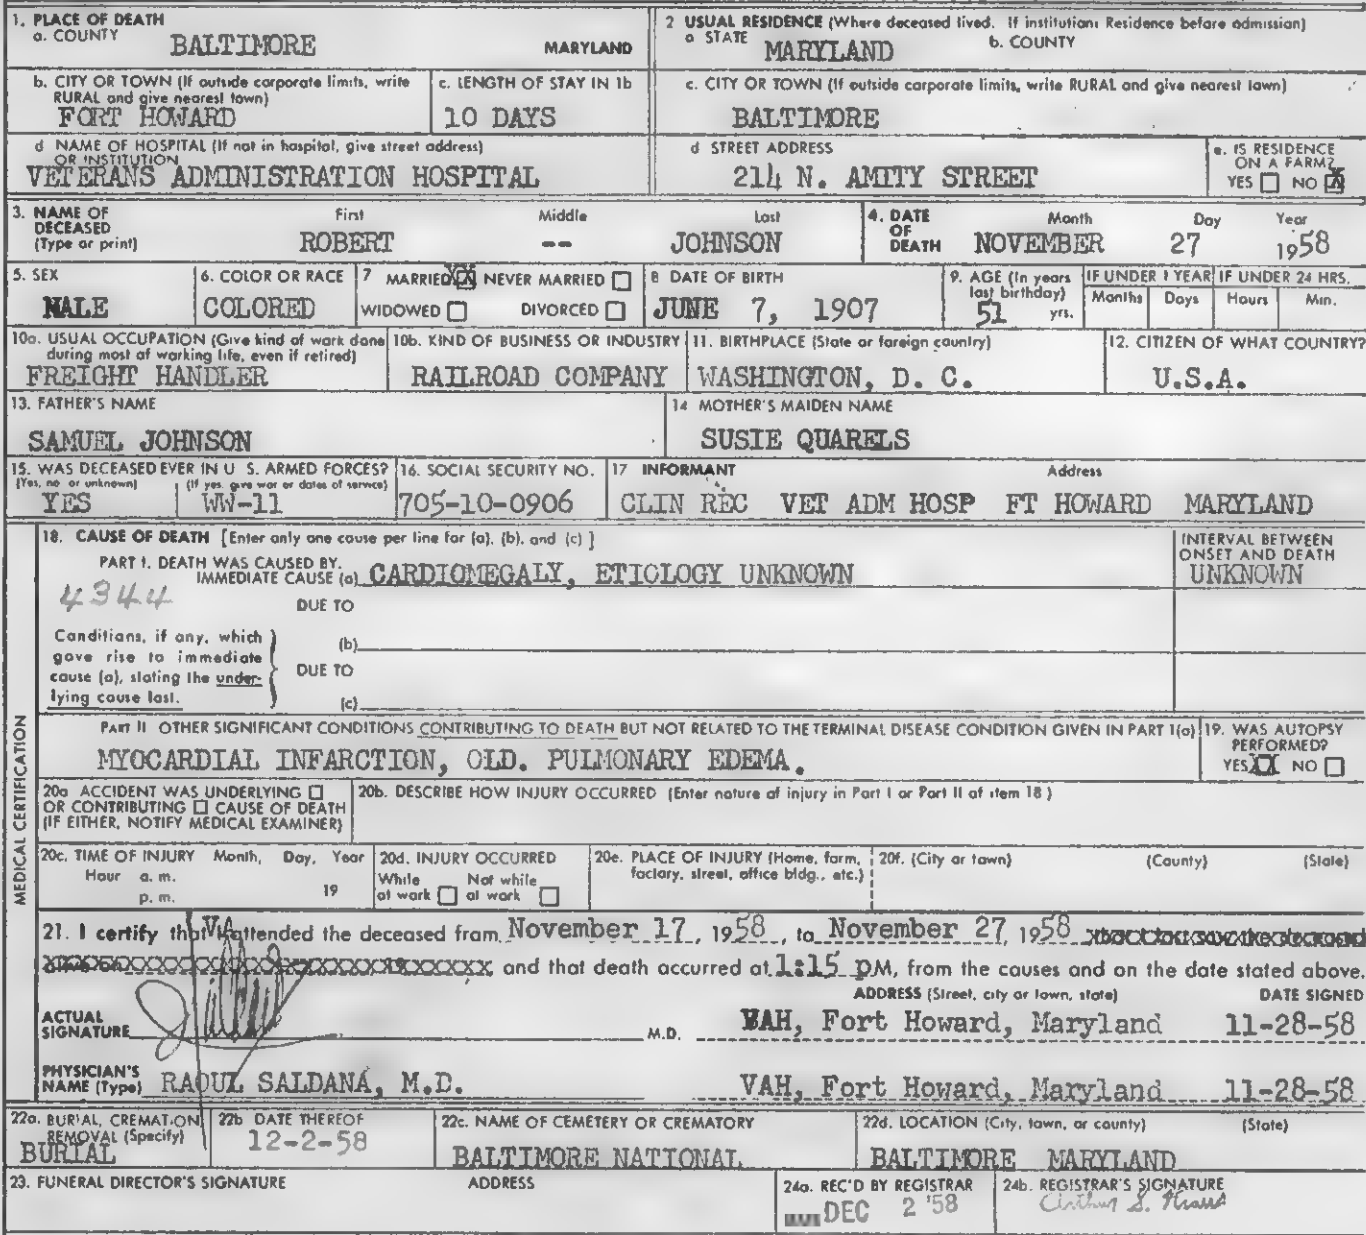 1. PLACE OF DEATH
a. COUNTY BALTIMORE MARYLAND
2 USUAL RESIDENCE (Where deceased lived. If institution: Residence before admission)
a STATE MARYLAND b. COUNTY
b. CITY OR TOWN (If outside corporate limits, write RURAL and give nearest town)
FORT HOWARD
c. LENGTH OF STAY IN 1b
10 DAYS
c. CITY OR TOWN (If outside corporate limits, write RURAL and give nearest town)
BALTIMORE
d NAME OF HOSPITAL (If not in hospital, give street address)
OR INSTITUTION
VETERANS ADMINISTRATION HOSPITAL
d STREET ADDRESS
214 N. AMITY STREET
e. IS RESIDENCE
ON A FARM?
YES NO X
3. NAME OF
DECEASED
(Type or print)
First Middle Last
ROBERT -- JOHNSON
4. DATE
OF
DEATH
Month Day Year
NOVEMBER 27 1958
5. SEX
MALE
6. COLOR OR RACE
COLORED
7 MARRIED XX NEVER MARRIED
WIDOWED DIVORCED
8 DATE OF BIRTH
JUNE 7, 1907
9. AGE (In years
last birthday)
51 yrs.
IF UNDER 1 YEAR IF UNDER 24 HRS.
Months Days Hours Min.
10a. USUAL OCCUPATION (Give kind of work done
during most of working life, even if retired)
FREIGHT HANDLER
10b. KIND OF BUSINESS OR INDUSTRY
RAILROAD COMPANY
11. BIRTHPLACE (State or foreign country)
WASHINGTON, D. C.
12. CITIZEN OF WHAT COUNTRY?
U.S.A.
13. FATHER'S NAME
SAMUEL JOHNSON
14 MOTHER'S MAIDEN NAME
SUSIE QUARELS
15. WAS DECEASED EVER IN U S. ARMED FORCES?
(Yes, no or unknown) (If yes, give war or dates of service)
YES WW-11
16. SOCIAL SECURITY NO.
705-10-0906
17 INFORMANT Address
CLIN REC VET ADM HOSP FT HOWARD MARYLAND
MEDICAL CERTIFICATION
18. CAUSE OF DEATH [Enter only one cause per line for (a), (b), and (c) ]
PART I. DEATH WAS CAUSED BY.
IMMEDIATE CAUSE (a) CARDIOMEGALY, ETIOLOGY UNKNOWN
INTERVAL BETWEEN
ONSET AND DEATH
UNKNOWN
4344
DUE TO
Conditions, if any, which
gave rise to immediate
cause (a), stating the under-
lying cause last.
(b)
DUE TO
(c)
PART II OTHER SIGNIFICANT CONDITIONS CONTRIBUTING TO DEATH BUT NOT RELATED TO THE TERMINAL DISEASE CONDITION GIVEN IN PART I(a)
MYOCARDIAL INFARCTION, OLD. PULMONARY EDEMA.
19. WAS AUTOPSY
PERFORMED?
YES X NO
20a ACCIDENT WAS UNDERLYING
OR CONTRIBUTING CAUSE OF DEATH
(IF EITHER, NOTIFY MEDICAL EXAMINER)
20b. DESCRIBE HOW INJURY OCCURRED (Enter nature of injury in Part I or Part II of item 18 )
20c. TIME OF INJURY Month, Day, Year
Hour a. m.
p. m. 19
20d. INJURY OCCURRED
While at work Not while at work
20e. PLACE OF INJURY (Home, farm,
factory, street, office bldg., etc.)
20f. (City or town) (County) (State)
21. I certify that VA attended the deceased from November 17, 1958, to November 27, 1958
and that death occurred at 1:15 PM, from the causes and on the date stated above.
ADDRESS (Street, city or town, state) DATE SIGNED
ACTUAL
SIGNATURE M.D. VAH, Fort Howard, Maryland 11-28-58
PHYSICIAN'S
NAME (Type) RAOUL SALDANA, M.D. VAH, Fort Howard, Maryland 11-28-58
22a. BURIAL, CREMATION,
REMOVAL (Specify)
BURIAL
22b DATE THEREOF
12-2-58
22c. NAME OF CEMETERY OR CREMATORY
BALTIMORE NATIONAL
22d. LOCATION (City, town, or county) (State)
BALTIMORE MARYLAND
23. FUNERAL DIRECTOR'S SIGNATURE ADDRESS
24a. REC'D BY REGISTRAR
DEC 2 '58
24b. REGISTRAR'S SIGNATURE
Arthur S. Kraus